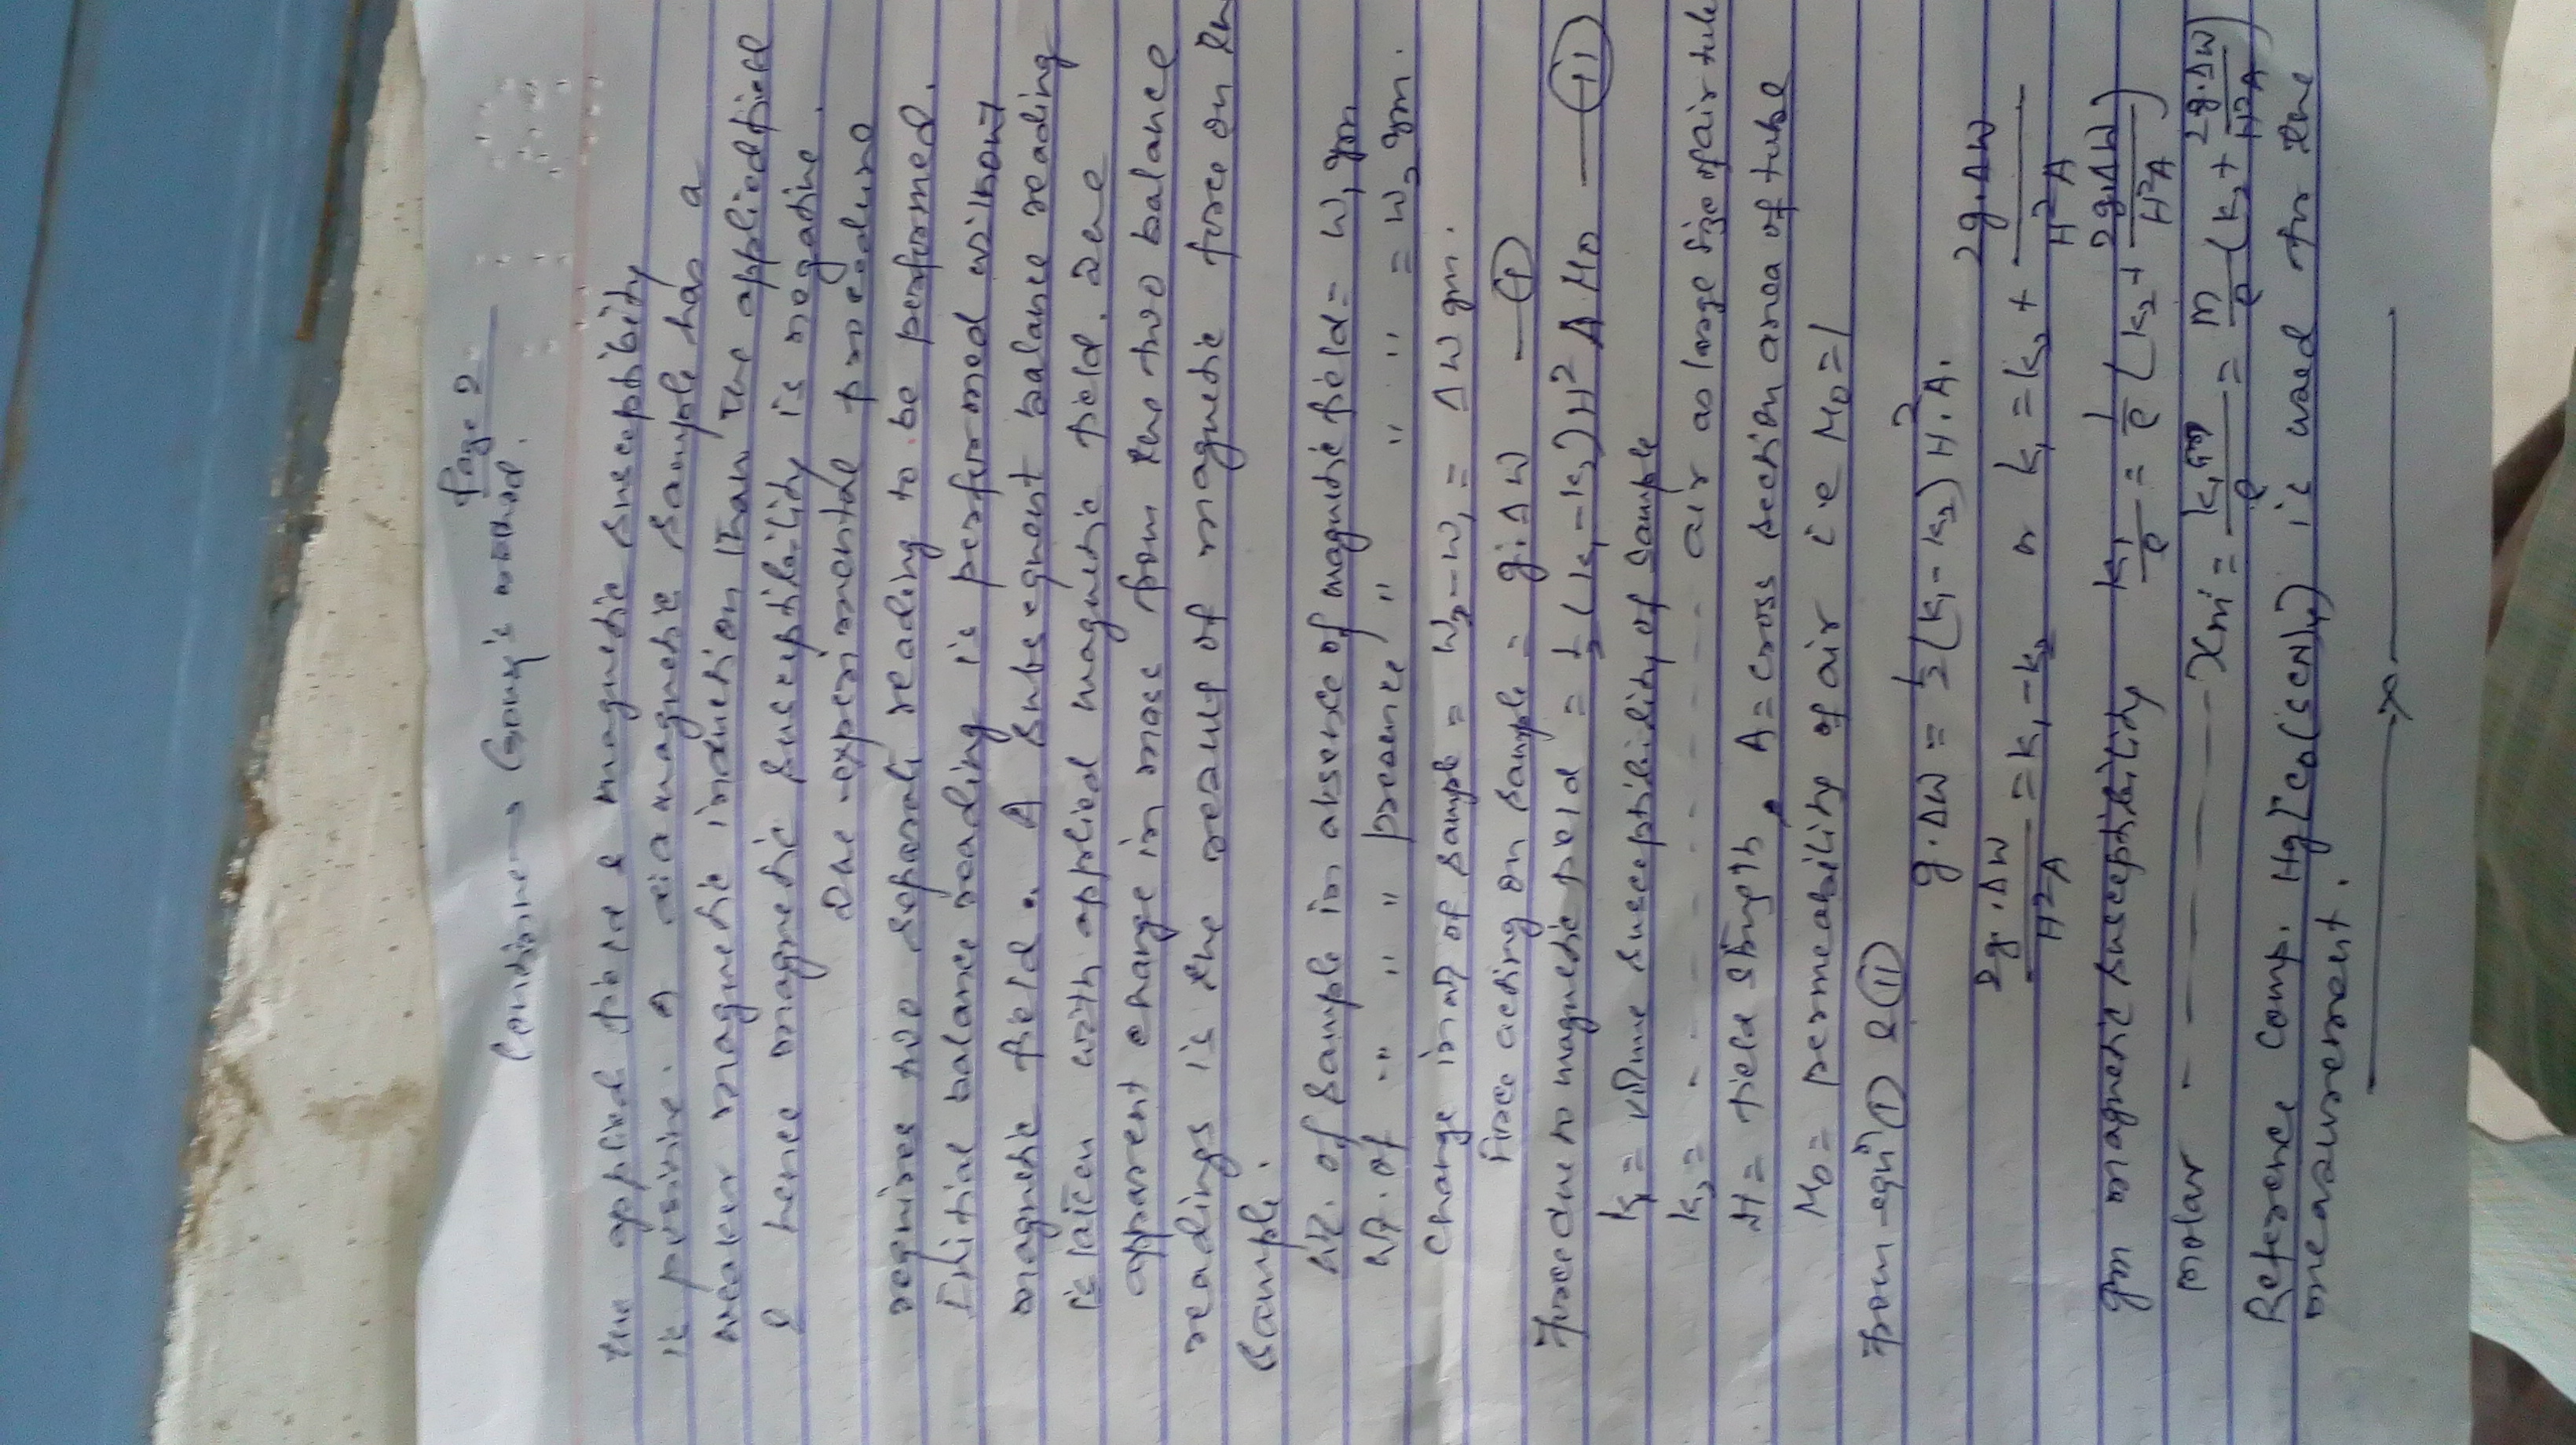 Page 2
Continue → Gouy's method.
the applied field & magnetic susceptibility
is positive. A diamagnetic sample has a
weaker magnetic induction than the applied field
& hence magnetic susceptibility is negative.
The experimental procedure
requires two separate reading to be performed.
Initial balance reading is performed without
magnetic field. A subsequent balance reading
is taken with applied magnetic field. The
apparent change in mass from the two balance
readings is the result of magnetic force on the
sample.
wt. of sample in absence of magnetic field = W₁ gm
wt. of " " " presence " " " = W₂ gm.
Change in wt of sample = W₂ - W₁ = ΔW gm.
Force acting on sample = g.ΔW — (I)
Force due to magnetic field = 1/2 (k₁-k₂)H² A M₀ — (II)
k₁ = volume susceptibility of sample
k₂ = - - - - - - - air as large size of air tube
H = field strength, A = cross section area of tube
M₀ = permeability of air i.e M₀ = 1
From eqn (I) & (II)
g.ΔW = 1/2 (k₁-k₂) H².A.
2g.ΔW/H²A = k₁-k₂ or k₁ = k₂ + 2g.ΔW/H²A
gm magnetic susceptibility k₁/ρ = 1/ρ (k₂ + 2g.ΔW/H²A)
molar - - - - - Xm = k₁m/ρ = m/ρ (k₂ + 2g.ΔW/H²A)
Reference comp. Hg[Co(SCN)₄] is used for the
measurement.
—x—